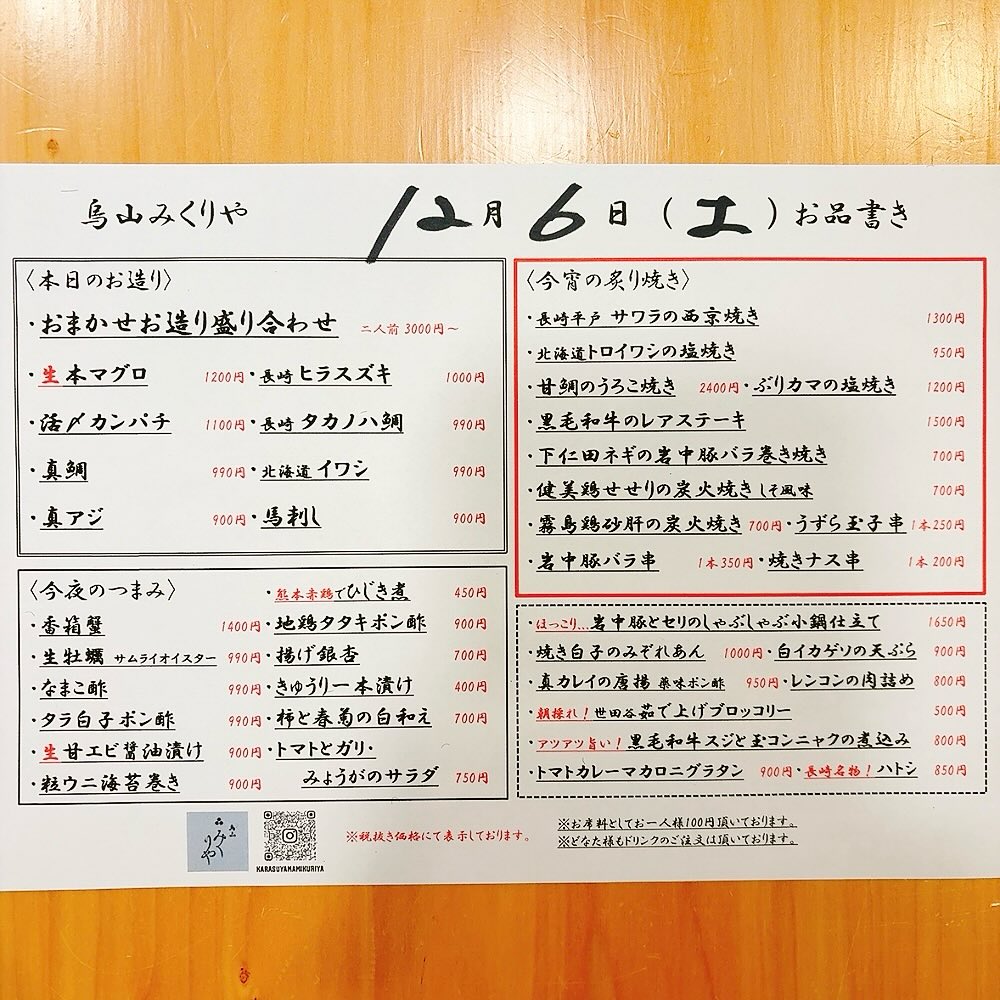 烏山みくりや 12月6日(土)お品書き
〈本日のお造り〉
・おまかせお造り盛り合わせ 二人前 3000円~
・生本マグロ 1200円・長崎 ヒラスズキ 1000円
・活〆カンパチ 1100円・長崎 タカノハ鯛 990円
・真鯛 990円・北海道 イワシ 990円
・真アジ 900円・馬刺し 900円
〈今夜のつまみ〉 ・熊本赤鶏でひじき煮 450円
・香箱蟹 1400円・地鶏タタキポン酢 900円
・生牡蠣 サムライオイスター 990円・揚げ銀杏 700円
・なまこ酢 990円・きゅうり一本漬け 400円
・タラ白子ポン酢 990円・柿と春菊の白和え 700円
・生甘エビ醤油漬け 900円・トマトとガリ・
・粒ウニ海苔巻き 900円 みょうがのサラダ 750円
〈今宵の炙り焼き〉
・長崎平戸 サワラの西京焼き 1300円
・北海道トロイワシの塩焼き 950円
・甘鯛のうろこ焼き 2400円・ぶりカマの塩焼き 1200円
・黒毛和牛のレアステーキ 1500円
・下仁田ネギの岩中豚バラ巻き焼き 700円
・健美鶏せせりの炭火焼き しそ風味 700円
・霧島鶏砂肝の炭火焼き 700円・うずら玉子串 1本250円
・岩中豚バラ串 1本350円・焼きナス串 1本200円
・ほっこり...岩中豚とセリのしゃぶしゃぶ小鍋仕立て 1650円
・焼き白子のみぞれあん 1000円・白イカゲソの天ぷら 900円
・真カレイの唐揚 薬味ポン酢 950円・レンコンの肉詰め 800円
・朝採れ!世田谷茹で上げブロッコリー 500円
・アツアツ旨い!黒毛和牛スジと玉コンニャクの煮込み 800円
・トマトカレーマカロニグラタン 900円・長崎名物!ハトシ 850円
烏山
みくりや
KARASUYAMAMIKURIYA
※税抜き価格にて表示しております。
※お席料としてお一人様100円頂いております。
※どなた様もドリンクのご注文は頂いております。